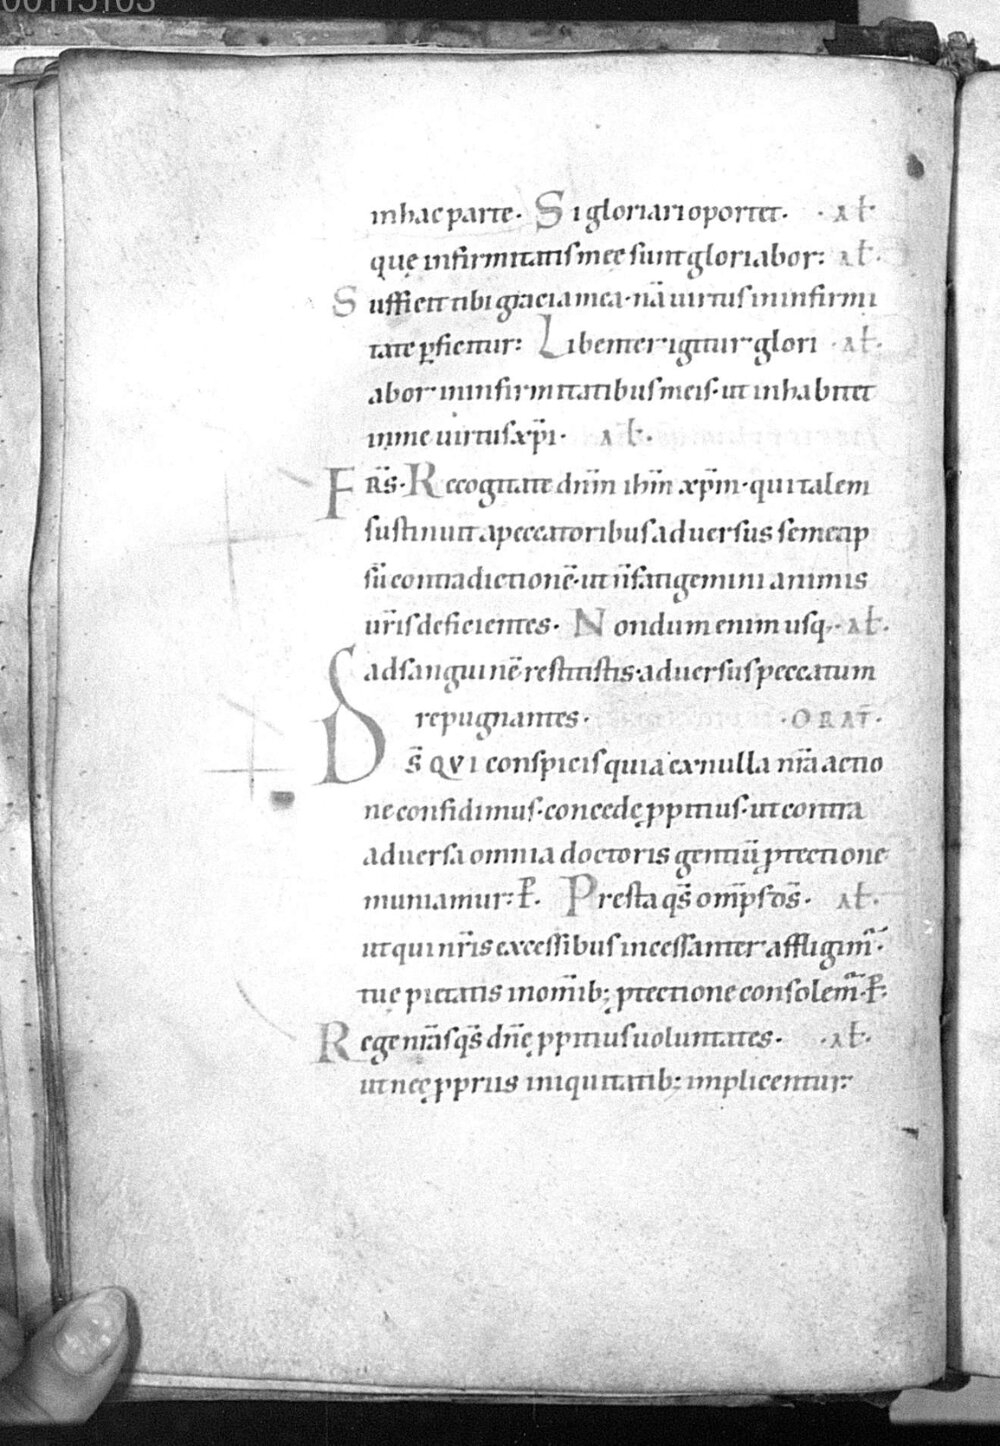 00115103
in hac parte. Si gloriari oportet. · Al̄.
que infirmitatis męę sunt gloriabor: Al̄.
Sufficit tibi gracia mea · nā uirtus in infirmi
tate ꝑficitur: Libenter igitur glori Al̄.
abor in infirmitatibus meis · ut inhabitet
in me uirtus xp̄i · Al̄.
FRS̄. Recogitate dn̄m ihm̄ xp̄m · qui talem
sustinuit a peccatoribus aduersus semetip
sū contradictionē · ut n̄ fatigemini animis
ur̄is deficientes. Nondum enim usq; · Al̄.
ad sanguinē restitistis · aduersus peccatum
repugnantes. · ORAT̄.
DS̄ QVI conspicis quia ex nulla nr̄a actio
ne confidimus · concede ꝓpitius · ut contra
aduersa omnia doctoris gentiū ꝓtectione
muniamur: P̄. Presta qs̄ om̄ps ds̄. Al̄.
ut qui nr̄is excessibus incessanter affligim̄ ·
tuę pietatis in om̄ib; ꝓtectione consolem̄ · P̄.
Rege nr̄as qs̄ dn̄e ꝓpitius uoluntates. · Al̄.
ut nec ꝓpriis iniquitatib; implicentur: